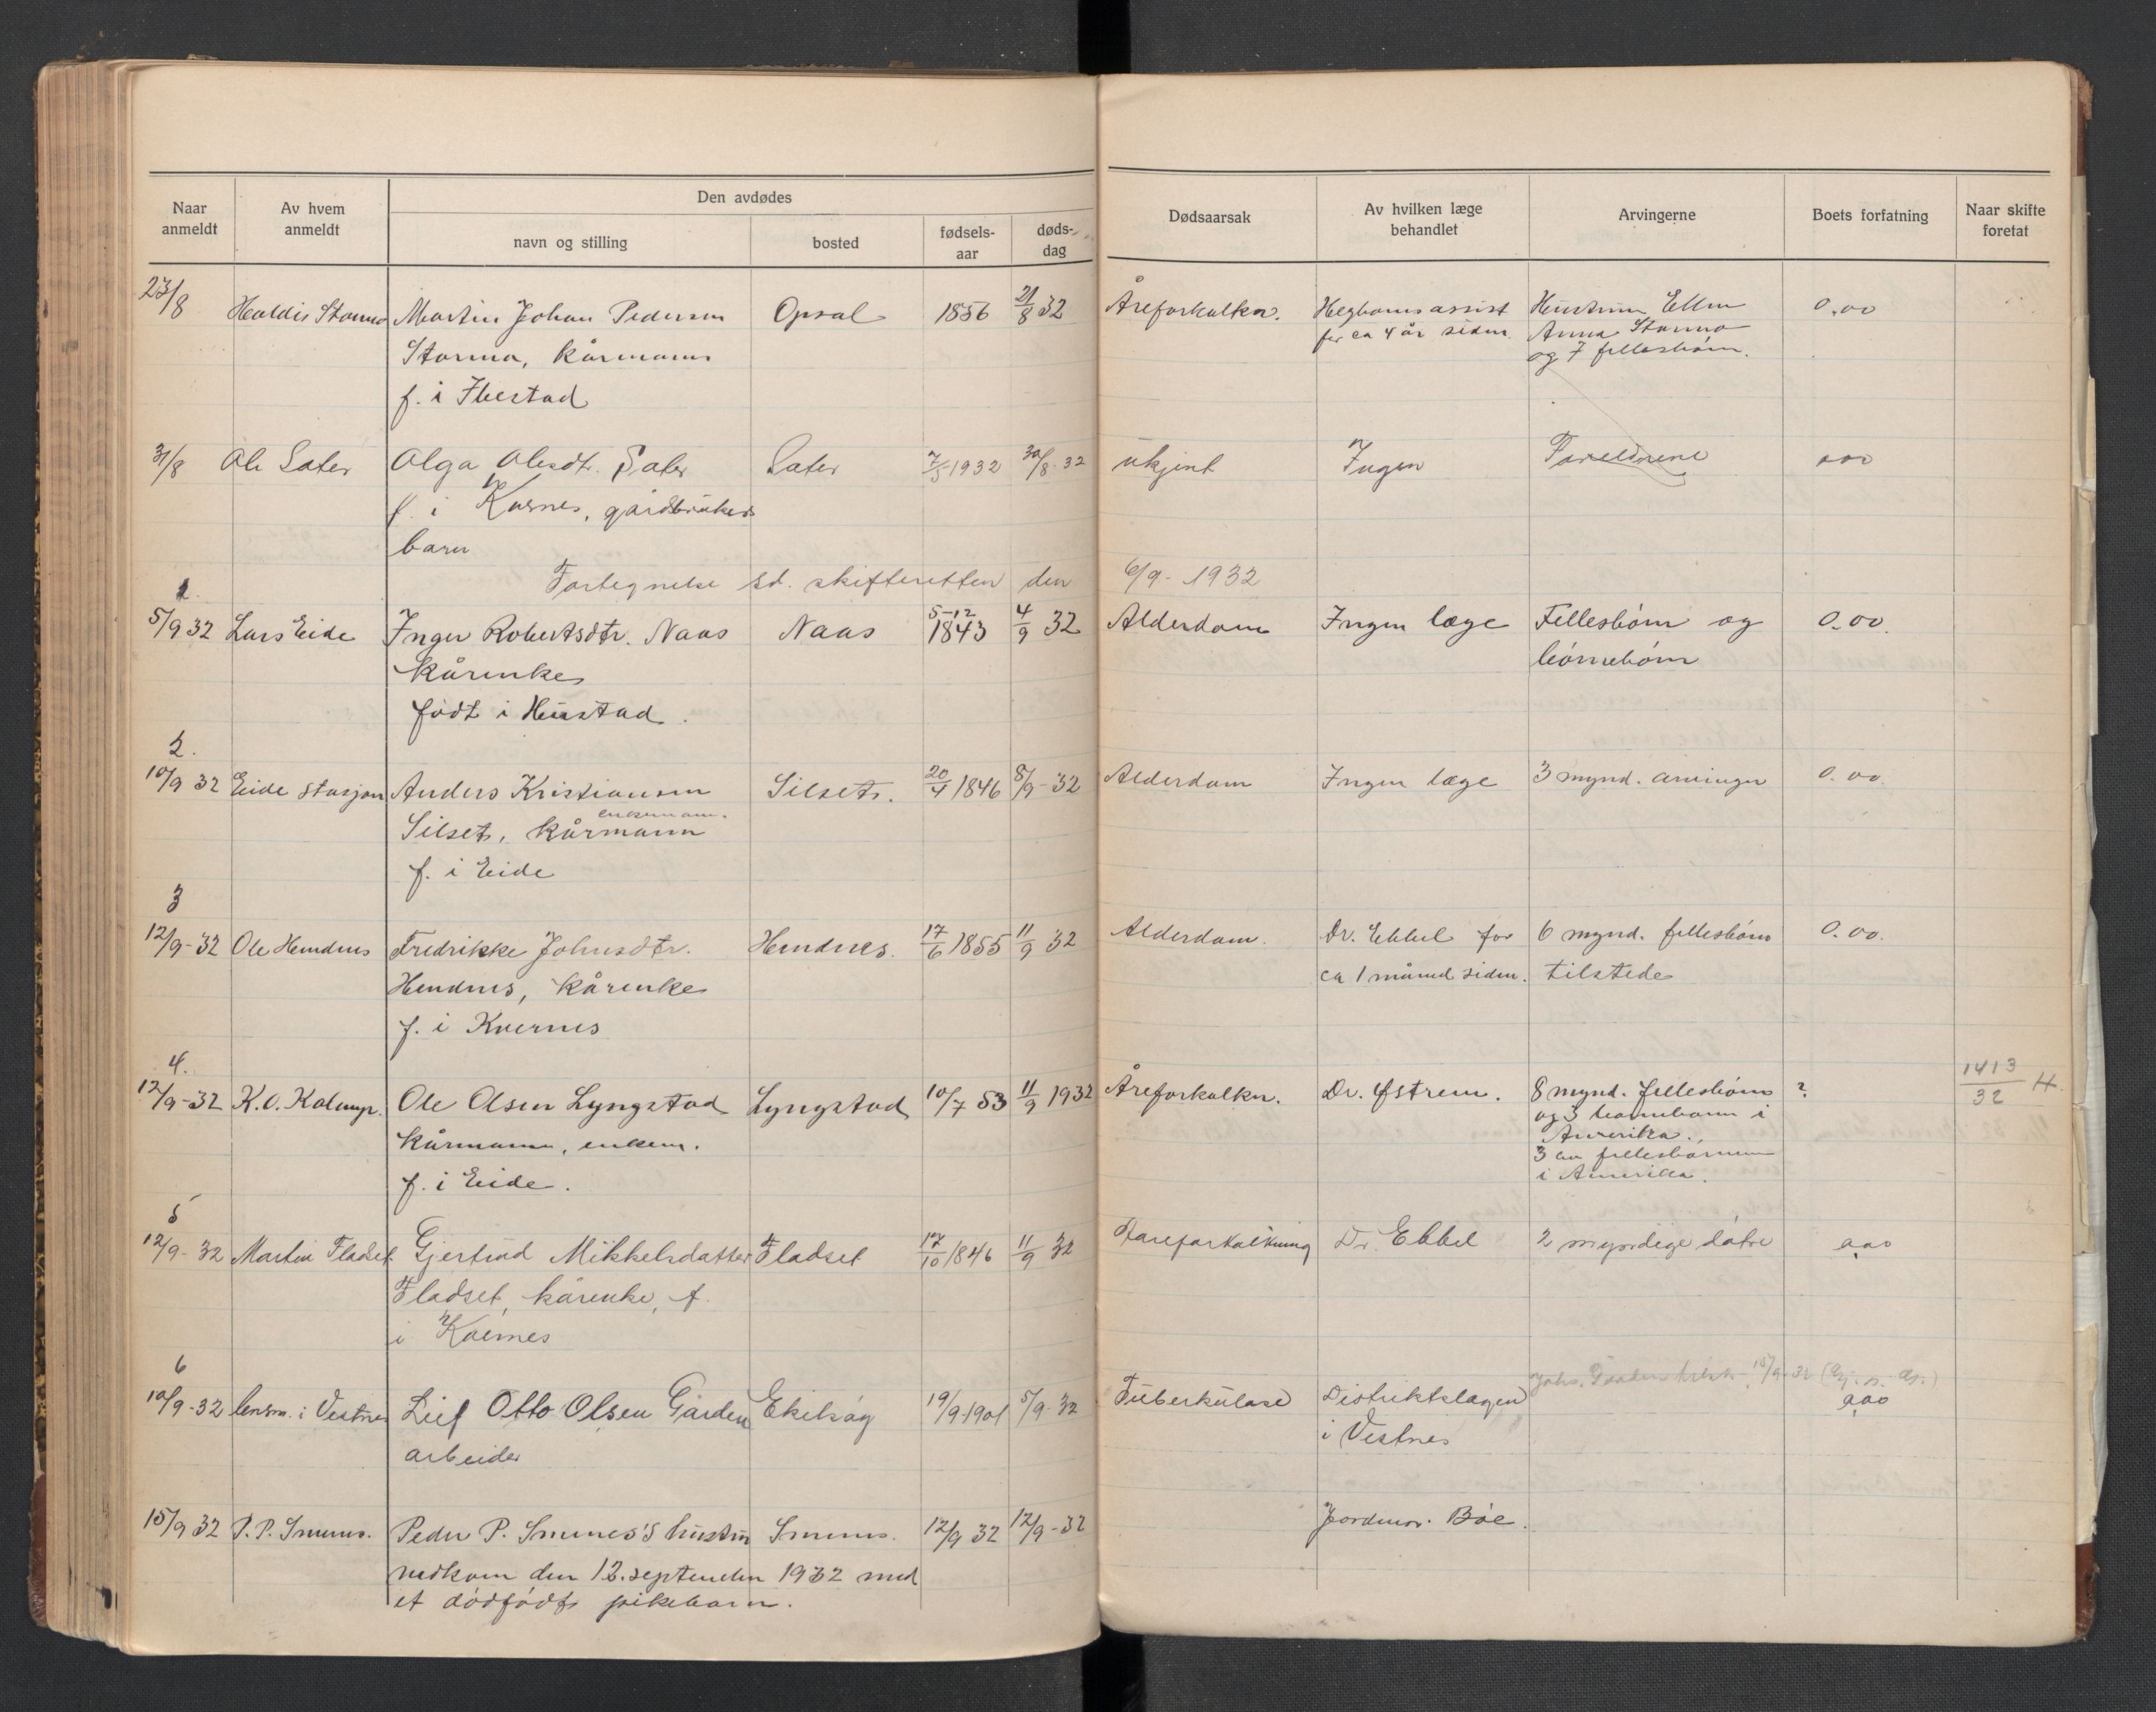 Naar anmeldt | Av hvem anmeldt | Den avdødes | Dødsaarsak | Av hvilken læge behandlet | Arvingerne | Boets forfatning | Naar skifte foretat
navn og stilling | bosted | fødsels-aar | døds-dag
23/8 | Haldis | Martin Johan Pedersen | Opsal | 1856 | 21/8 32 | Åreforkalkn. | assist | Hustrun Ellen | 0.00
kårmann | for ca 4 år siden | Anna
f. i Ibestad | og 7 fellesbørn.
31/8 | Ole Sater | Olga Olesdtr. Sater | Sater | 7/5 1932 | 30/8-32 | ukjent | Ingen | Foreldrene | 0,00
f. i Kvernes, gårdbrukers
barn
Fortegnelse sd. skifteretten den 6/9-1932
1.
5/9 32 | Lars Eide | Inger Robertsdtr. Naas | Naas | 5-12 1843 | 4/9 32 | Alderdom | Ingen læge | Fellesbørn og | 0.00.
kårenke | børnebørn
født i Hustad.
2.
10/9 32 | Eide stasjon | Anders Kristiansen | Silset. | 20/4 1846 | 8/9-32 | Alderdom | Ingen læge | 3 mynd. arvinger | 0.00.
enkemann.
Silset, kårmann
f. i Eide
3
12/9-32 | Ole Hendnes | Fredrikke Johnsdtr. | Hendnes. | 17/6 1855 | 11/9 32 | Alderdom. | Dr. Ebbel for | 6 mynd. fellesbørn | 0.00.
Hendnes, kårenke | ca 1 måned siden. | tilstede
f. i Kvernes
4.
12/9-32 | K. O. | Ole Olsen Lyngstad | Lyngstad | 10/7 53 | 11/9 1932 | Åreforkalkn. | Dr. Østrem. | 8 mynd. fellesbørn | ? | 1413/32 H.
kårmann, enkem. | og 3 barnebarn i
Amerika.
f. i Eide. | 3 av fellesbørnene
i Amerika.
5
12/9-32 | Martin Fladset | Gjertrud Mikkelsdatter | Fladset | 17/10 1846 | 11/9 32 | Aareforkalkning | Dr. Ebbel | 2 myndige døtre | 0,00
Fladset, kårenke, f.
i Kvernes
6
10/9-32 | lensm. i Vestnes | Leif Otto Olsen Garden | 19/9-1901 | 5/9-32 | Tuberkulose | Distriktslægen | 15/9-32 | 0,00
arbeider | i Vestnes
15/9 32 | P. P. Smenes. | Peder P. Smenes's hustru | Smenes. | 12/9 32 | 12/9-32 | Jordmor. Bøe.
nedkom den 12. september 1932 med
et dødfødt pikebarn.